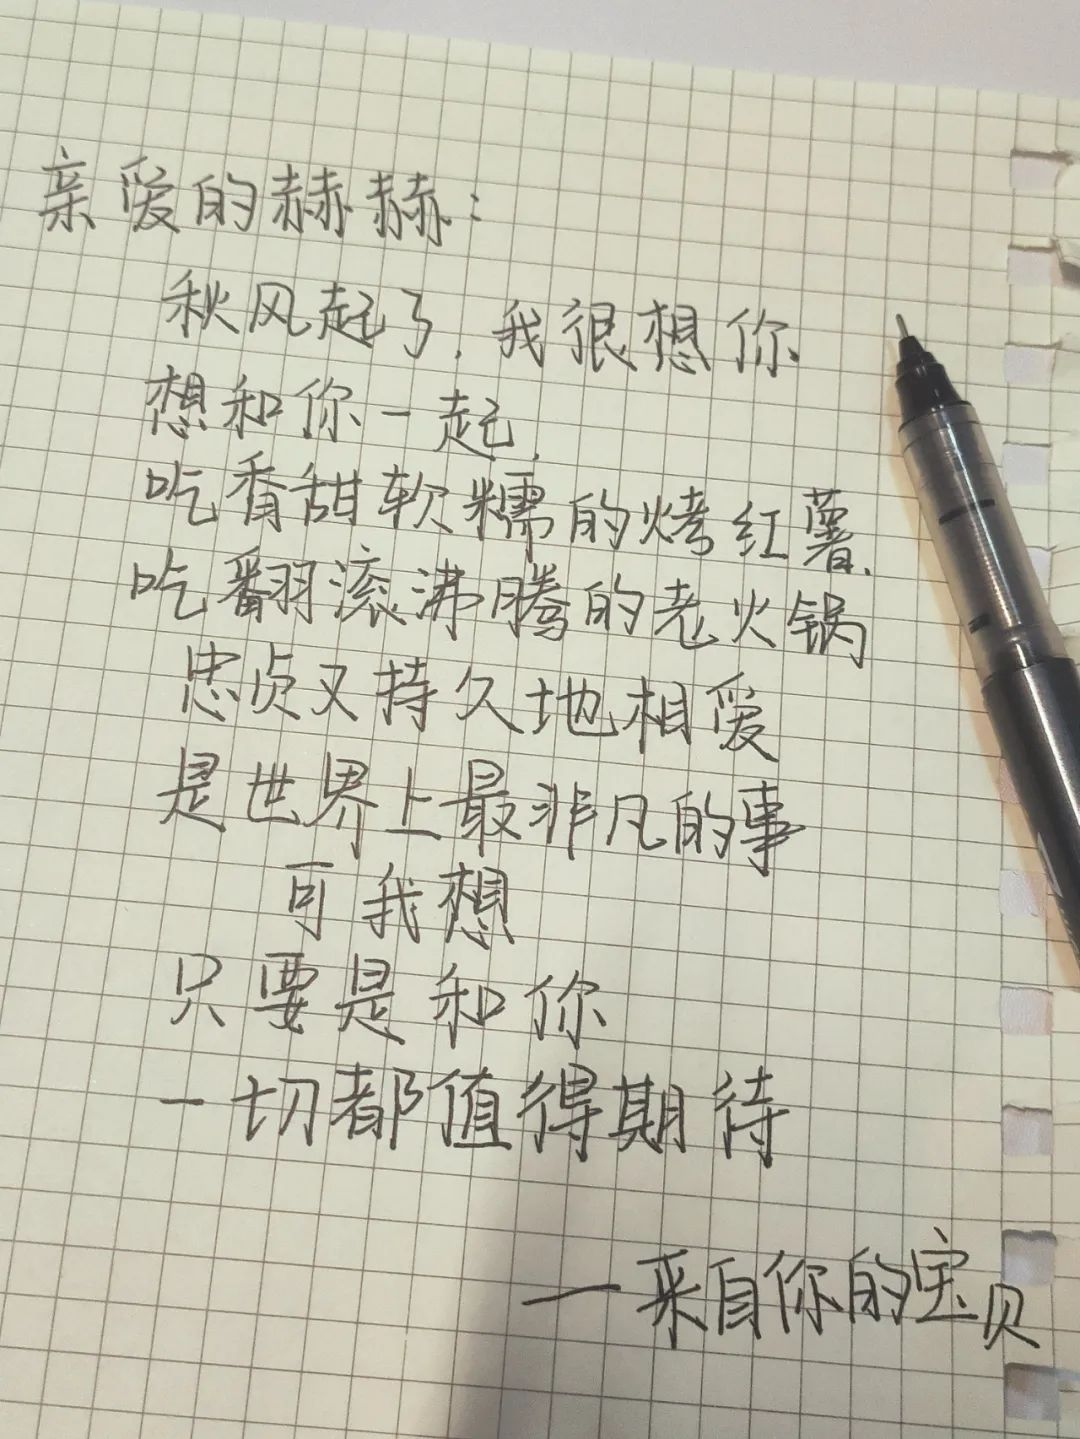 亲爱的赫赫：
秋风起了，我很想你
想和你一起，
吃香甜软糯的烤红薯，
吃翻滚沸腾的老火锅
忠贞又持久地相爱
是世界上最非凡的事
可我想
只要是和你
一切都值得期待
—来自你的宝贝